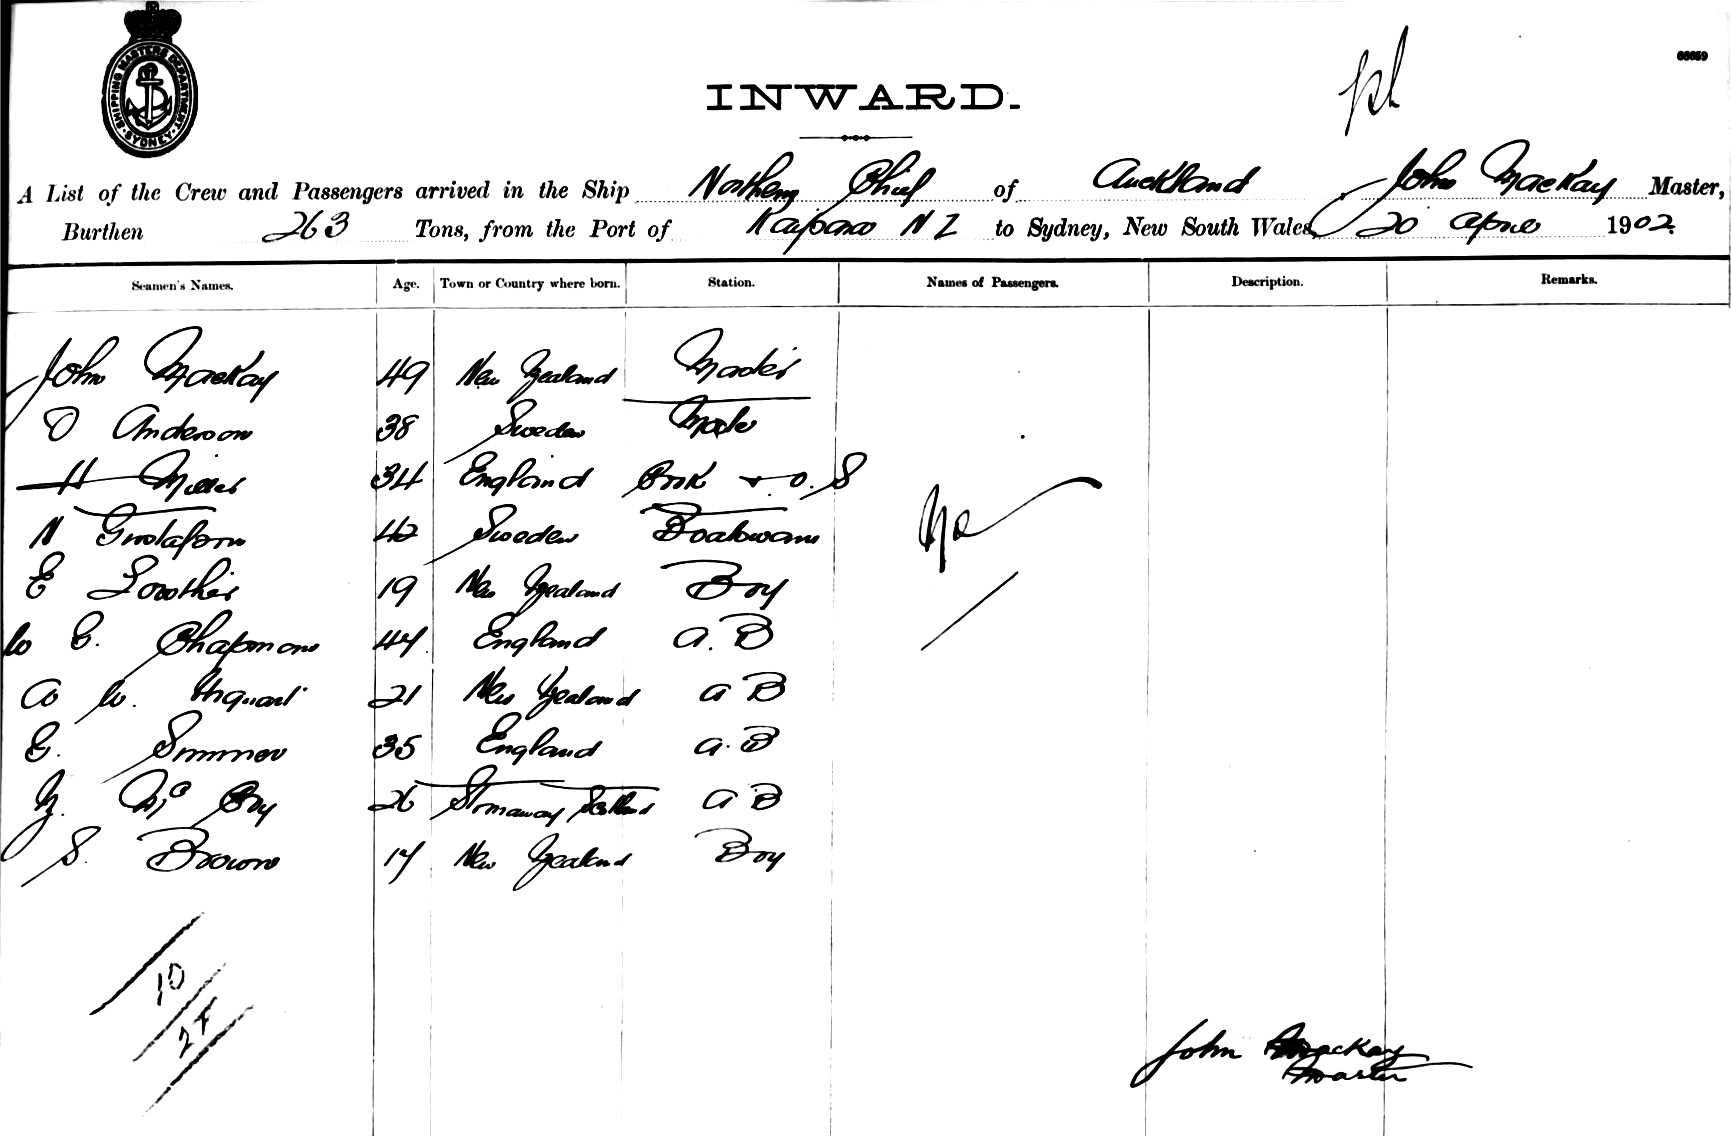 SHIPPING MASTERS DEPARTMENT. SYDNEY
66659
INWARD.
A List of the Crew and Passengers arrived in the Ship Northern Chief of Auckland, John MacKay Master,
Burthen 263 Tons, from the Port of Kaipara N Z to Sydney, New South Wales, 20 April 1902.
Seamen's Names. Age. Town or Country where born. Station. Names of Passengers. Description. Remarks.
John MacKay 49 New Zealand Master
O Anderson 38 Sweden Mate
H Miller 34 England Cook + O. S
N Gustafson 42 Sweden Boatswain
E Lowther 19 New Zealand Boy
W E. Chapman 47 England A. B
A W. Urquart 21 New Zealand A B
E. Simmer 35 England A. B
Mc Coy 26 Stornaway Scotland A B
S. Brown 17 New Zealand Boy
10
27
John MacKay
Master